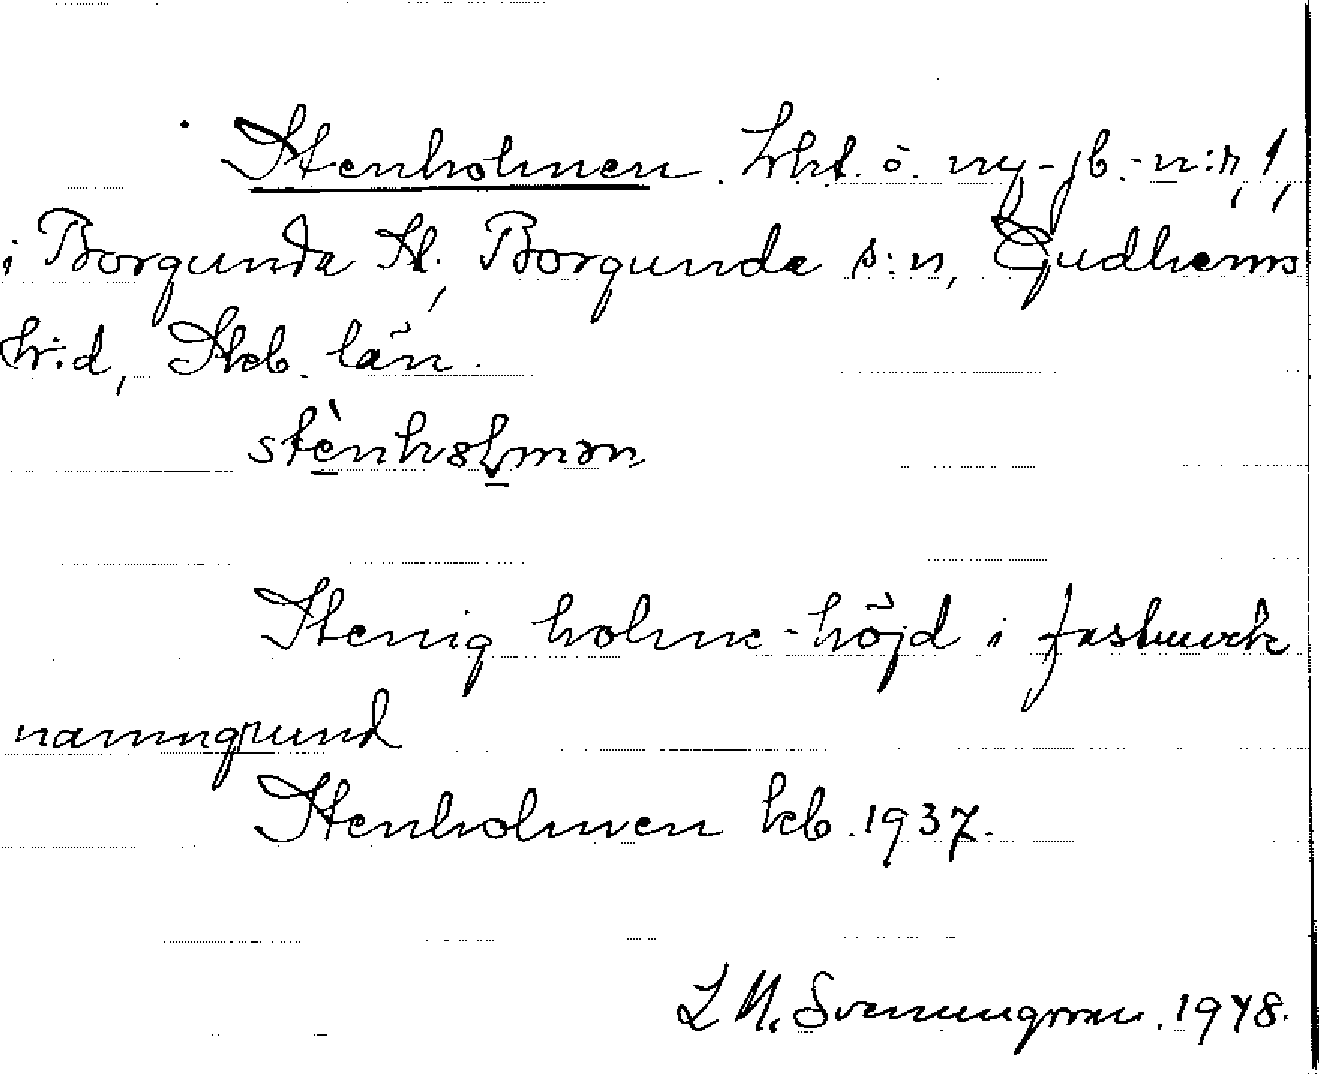 Stenholmen. lht. ö. ny-jb.-n:r, 1,
i Borgunda St., Borgunda s:n, Gudhems
hr:d, Skb. län.
stènholmən
Stenig holme-höjd i fastmark
namngrund
Stenholmen kb. 1937.
Svenungsson. 1948.